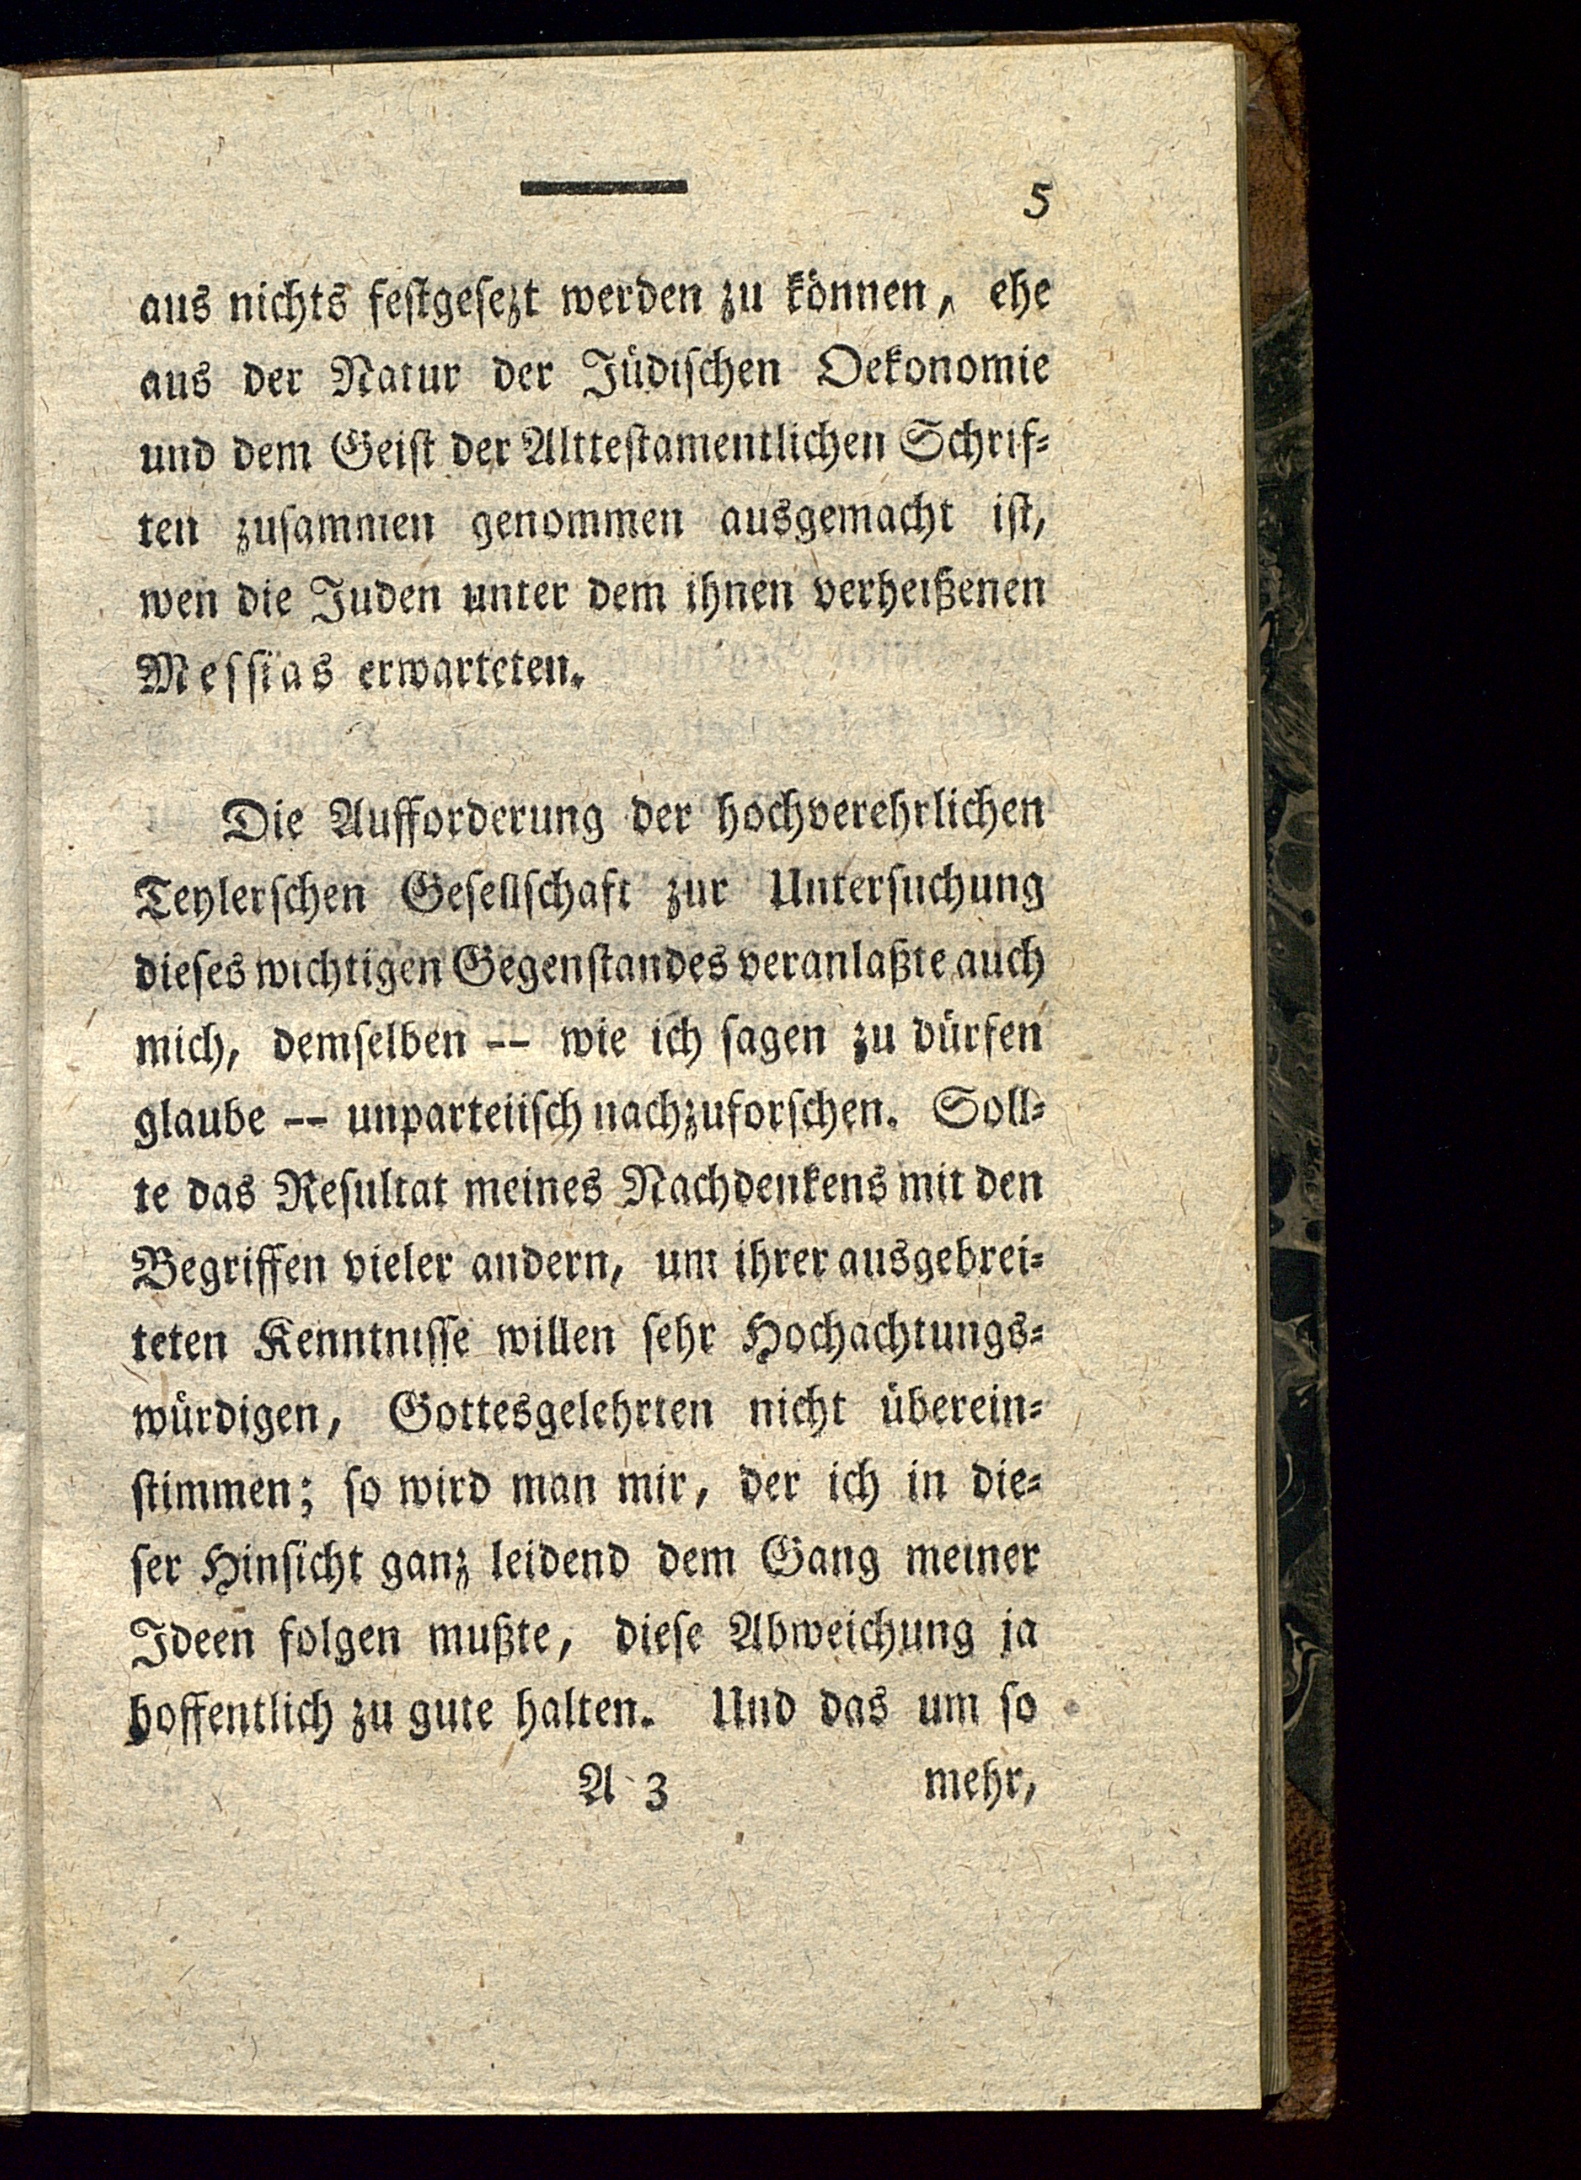 5
aus nichts festgesezt werden zu können, ehe
aus der Natur der Jüdischen Oekonomie
und dem Geist der Alttestamentlichen Schrif=
ten zusammen genommen ausgemacht ist,
wen die Juden unter dem ihnen verheißenen
Messias erwarteten.
Die Aufforderung der hochverehrlichen
Teylerschen Gesellschaft zur Untersuchung
dieses wichtigen Gegenstandes veranlaßte auch
mich, demselben -- wie ich sagen zu dürfen
glaube -- unparteiisch nachzuforschen. Soll=
te das Resultat meines Nachdenkens mit den
Begriffen vieler andern, um ihrer ausgebrei=
teten Kenntnisse willen sehr Hochachtungs=
würdigen, Gottesgelehrten nicht überein=
stimmen; so wird man mir, der ich in die=
ser Hinsicht ganz leidend dem Gang meiner
Ideen folgen mußte, diese Abweichung ja
hoffentlich zu gute halten. Und das um so
A 3 mehr,